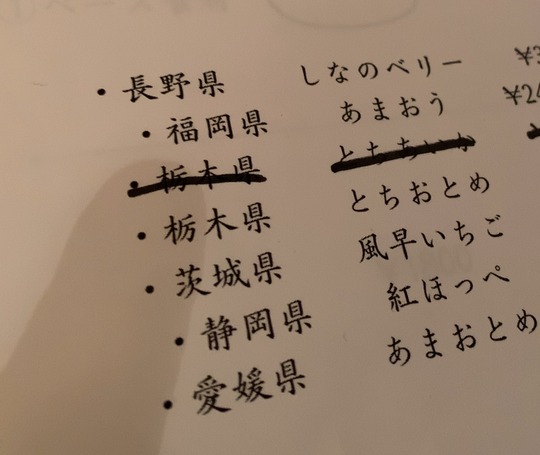 ・長野県 しなのベリー ¥3
・福岡県 あまおう ¥2
・栃木県 とちあいか
・栃木県 とちおとめ
・茨城県 風早いちご
・静岡県 紅ほっぺ
・愛媛県 あまおとめ